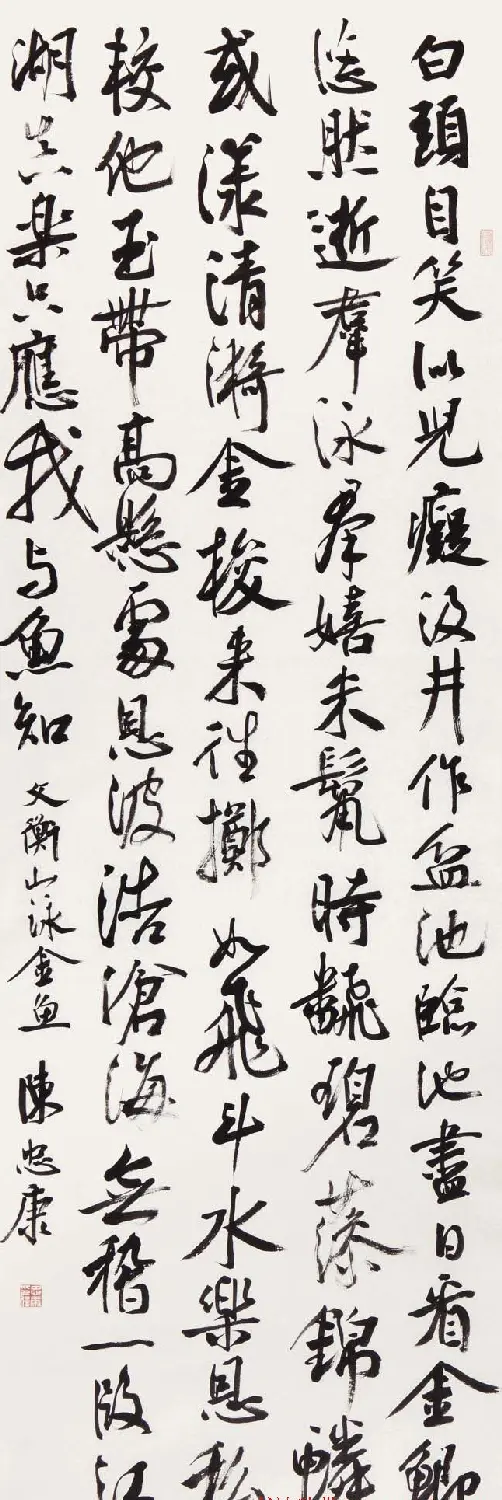 白頭自笑似兒癡汲井作盆池臨池盡日看金鯽
悠然逝羣泳羣嬉朱鬣時翻碧藻錦鱗
或漾清漪金梭来往擲如飛斗水樂恩私
較他玉帶高懸處恩波浩滄海無稽一段江
湖真楽只應我与魚知
文衡山詠金魚 陳忠康